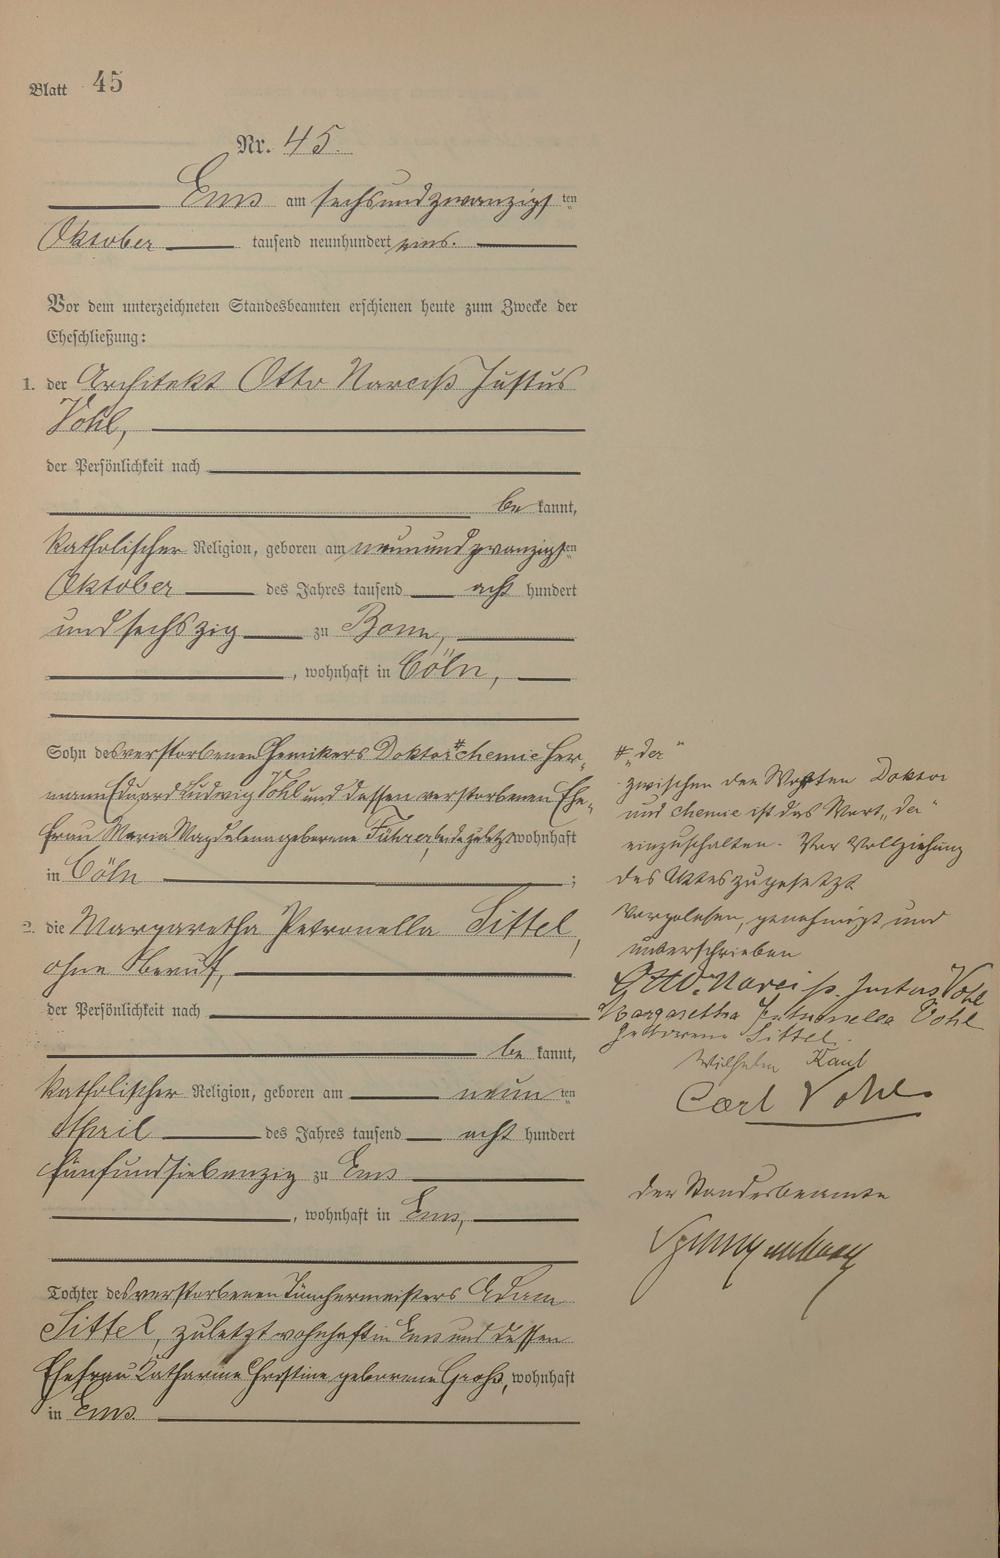 Blatt 45
Nr. 45.
Ems am sechsundzwanzigsten
Oktober tausend neunhundert eins.
Vor dem unterzeichneten Standesbeamten erschienen heute zum Zwecke der
Eheschließung:
1. der Architekt Otto Narciß Justus
Vohl,
der Persönlichkeit nach
be kannt,
katholischer Religion, geboren am neunundzwanzigsten
Oktober des Jahres tausend acht hundert
undsechszig zu Bonn,
, wohnhaft in Cöln,
Sohn des verstorbenen Chemikers Doktor # chemie Her-
mann Eduard Ludwig Vohl und dessen verstorbenen Ehe-
frau Maria Magdalena geborene Führer, beide zuletzt wohnhaft
in Cöln ;
2. die Margaretha Petronella Sittel,
ohne Beruf,
der Persönlichkeit nach
be kannt,
katholischer Religion, geboren am neun ten
April des Jahres tausend acht hundert
fünfundsiebenzig zu Ems
, wohnhaft in Ems,
Tochter des verstorbenen Tünchermeisters Adam
Sittel, zuletzt wohnhaft in Ems und dessen
Ehefrau Katharine Christine geborene Groß, wohnhaft
in Ems
# „der"
zwischen den Worten Doktor
und chemie ist das Wort „der"
einzuschalten. Vor Vollziehung
des Aktes zugesetzt
Vorgelesen, genehmigt und
unterschrieben
Otto Narciß Justus Vohl
Margaretha Petronella Vohl
geborene Sittel.
Wilhelm Kaul
Carl Vohl.
Der Standesbeamte